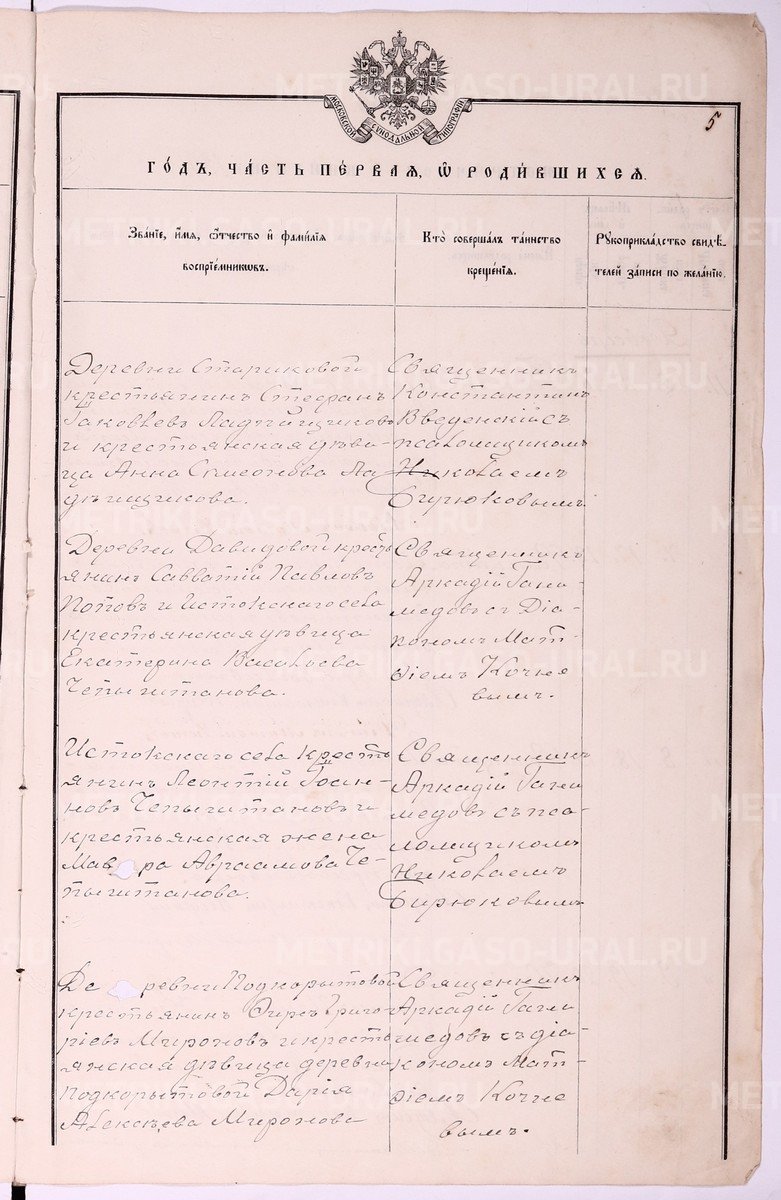 МОСКОВСКОЙ СѴНОДАЛЬНОЙ ТИПОГРАФІИ
5
ГО́ДЪ, ЧА́СТЬ ПЕ́РВАѦ, Ѡ҆ РОДИ́ВШИХСѦ.
Зва́нїе, и҆́мѧ, ѻ҆́тчество и҆ фами́лїѧ
воспрїе́мникѡвъ.
Кто̀ соверша́лъ та́инство
креще́нїѧ.
Рꙋкоприкла́дство свидѣ́-
телей за́писи по жела́нїю.
Деревни Стариковой
крестьянинъ Стефанъ
Іаковлевъ Ладейщиковъ
и крестьянская дѣви-
ца Анна Симеонова Ла
дѣищикова.
Священникъ
Константинъ
Введенскій съ
псаломщикомъ
Николаемъ
Бирюковымъ.
Деревни Давидовой кресть
янинъ Савватій Павловъ
Поповъ и Истокскаго села
крестьянская дѣвица
Екатерина Васильева
Чепыштанова.
Священникъ
Аркадій Гани-
медовъ съ Діа-
кономъ Мат-
ѳіемъ Кочне
вымъ.
Истокскаго села кресть
янинъ Леонтій Іоан-
новъ Чепыштановъ и
крестьянская жена
Мавра Авраамова Че-
пыштанова.
Священникъ
Аркадій Гани
медовъ съ пса-
ломщикомъ
Николаемъ
Бирюковымъ
Деревни Подкорытовой
крестьянинъ Григо
ріевъ Мироновъ и кресть
янская дѣвица деревни
Подкорытовой Дарія
Алексѣева Миронова
Священникъ
Аркадій Гани
медовъ съ діа-
кономъ Мат-
ѳіемъ Кочне
вымъ.
METRIKI.GASO-URAL.RU